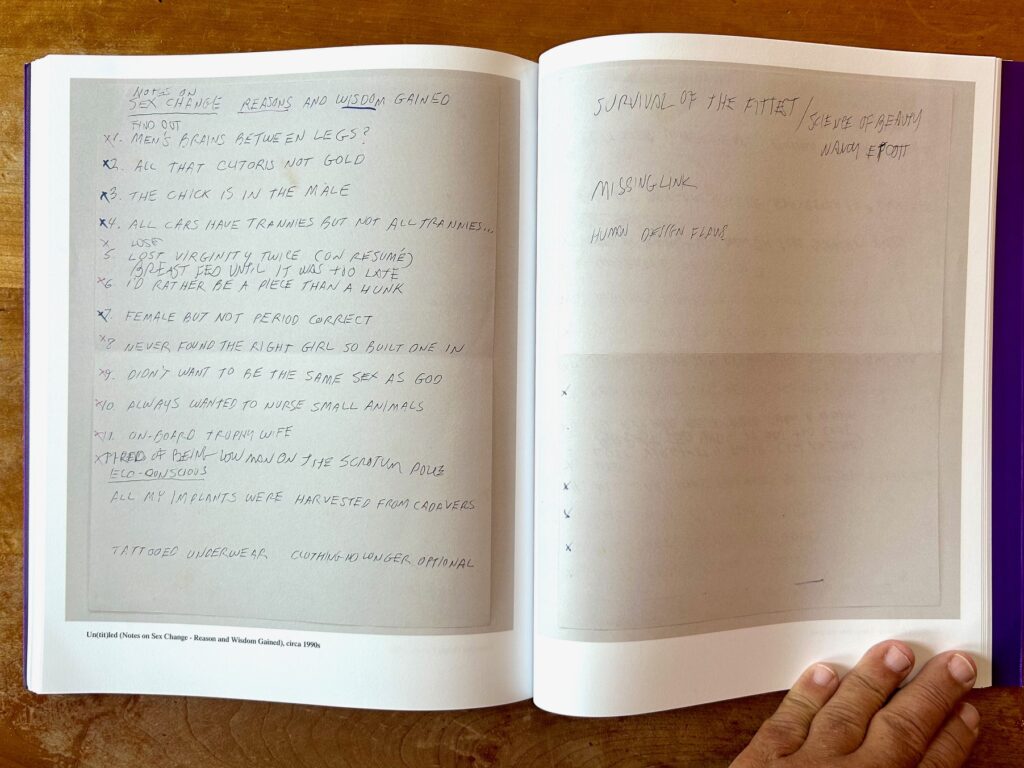 NOTES ON
SEX CHANGE REASONS AND WISDOM GAINED
FIND OUT
x1. MEN'S BRAINS BETWEEN LEGS?
x2. ALL THAT CLITORIS NOT GOLD
x3. THE CHICK IS IN THE MALE
x4. ALL CARS HAVE TRANNIES BUT NOT ALL TRANNIES...
x LOSE
5. LOST VIRGINITY TWICE (ON RESUMÉ)
BREAST FED UNTIL IT WAS TOO LATE
x6. I'D RATHER BE A PIECE THAN A HUNK
x7. FEMALE BUT NOT PERIOD CORRECT
x8 NEVER FOUND THE RIGHT GIRL SO BUILT ONE IN
x9. DIDN'T WANT TO BE THE SAME SEX AS GOD
x10. ALWAYS WANTED TO NURSE SMALL ANIMALS
x11. ON-BOARD TROPHY WIFE
x TIRED OF BEING LOW MAN ON THE SCROTUM POLE
ECO-CONSCIOUS
ALL MY IMPLANTS WERE HARVESTED FROM CADAVERS
TATTOOED UNDERWEAR CLOTHING NO LONGER OPTIONAL
Un(tit)led (Notes on Sex Change - Reason and Wisdom Gained), circa 1990s
SURVIVAL OF THE FITTEST / SCIENCE OF BEAUTY
NANCY ETCOFF
MISSING LINK
HUMAN DESIGN FLAWS